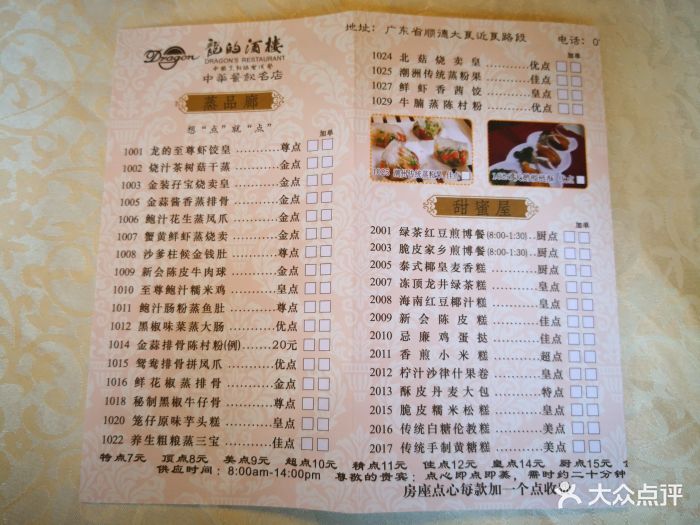 Dragon
龍的酒楼
DRAGON'S RESTAURANT
中華餐飲名店
蒸品廊
想“点”就“点”
加单
1001 龙的至尊虾饺皇 尊点
1002 烧汁茶树菇干蒸 金点
1003 金装孖宝烧卖皇 金点
1005 金蒜酱香蒸排骨 金点
1006 鲍汁花生蒸凤爪 金点
1007 蟹黄鲜虾蒸烧卖 金点
1008 沙爹柱候金钱肚 金点
1009 新会陈皮牛肉球 金点
1010 至尊鲍汁糯米鸡 皇点
1011 鲍汁肠粉蒸鱼肚 尊点
1012 黑椒味菜蒸大肠 优点
1014 金蒜排骨陈村粉(例) 20元
1015 鸳鸯排骨拼凤爪 优点
1016 鲜花椒蒸排骨 金点
1018 秘制黑椒牛仔骨 尊点
1020 笼仔原味芋头糕 皇点
1022 养生粗粮蒸三宝 佳点
地址：广东省顺德大良近良路段 电话：0
加单
1024 北菇烧卖皇 优点
1025 潮洲传统蒸粉果 佳点
1027 鲜虾香茜饺 皇点
1029 牛腩蒸陈村粉 优点
1025 潮洲传统蒸粉果 佳点
甜蜜屋
2001 绿茶红豆煎博餐(8:00-1:30) 厨点
2003 脆皮家乡煎博餐(8:00-1:30) 厨点
2005 泰式椰皇麦香糕 厨点
2007 冻顶龙井绿茶糕 皇点
2008 海南红豆椰汁糕 皇点
2009 新会陈皮糕 佳点
2010 忌廉鸡蛋挞 佳点
2011 香煎小米糕 超点
2012 柠汁沙律什果卷 皇点
2013 酥皮丹麦大包 特点
2015 脆皮糯米松糕 皇点
2016 传统白糖伦教糕 美点
2017 传统手制黄糖糕 美点
特点7元 顶点8元 美点9元 超点10元 精点11元 佳点12元 皇点14元 厨点15元
供应时间：8:00am-14:00pm 尊敬的贵宾：点心即点即蒸，需时约二十分钟
房座点心每款加一个点收
大众点评